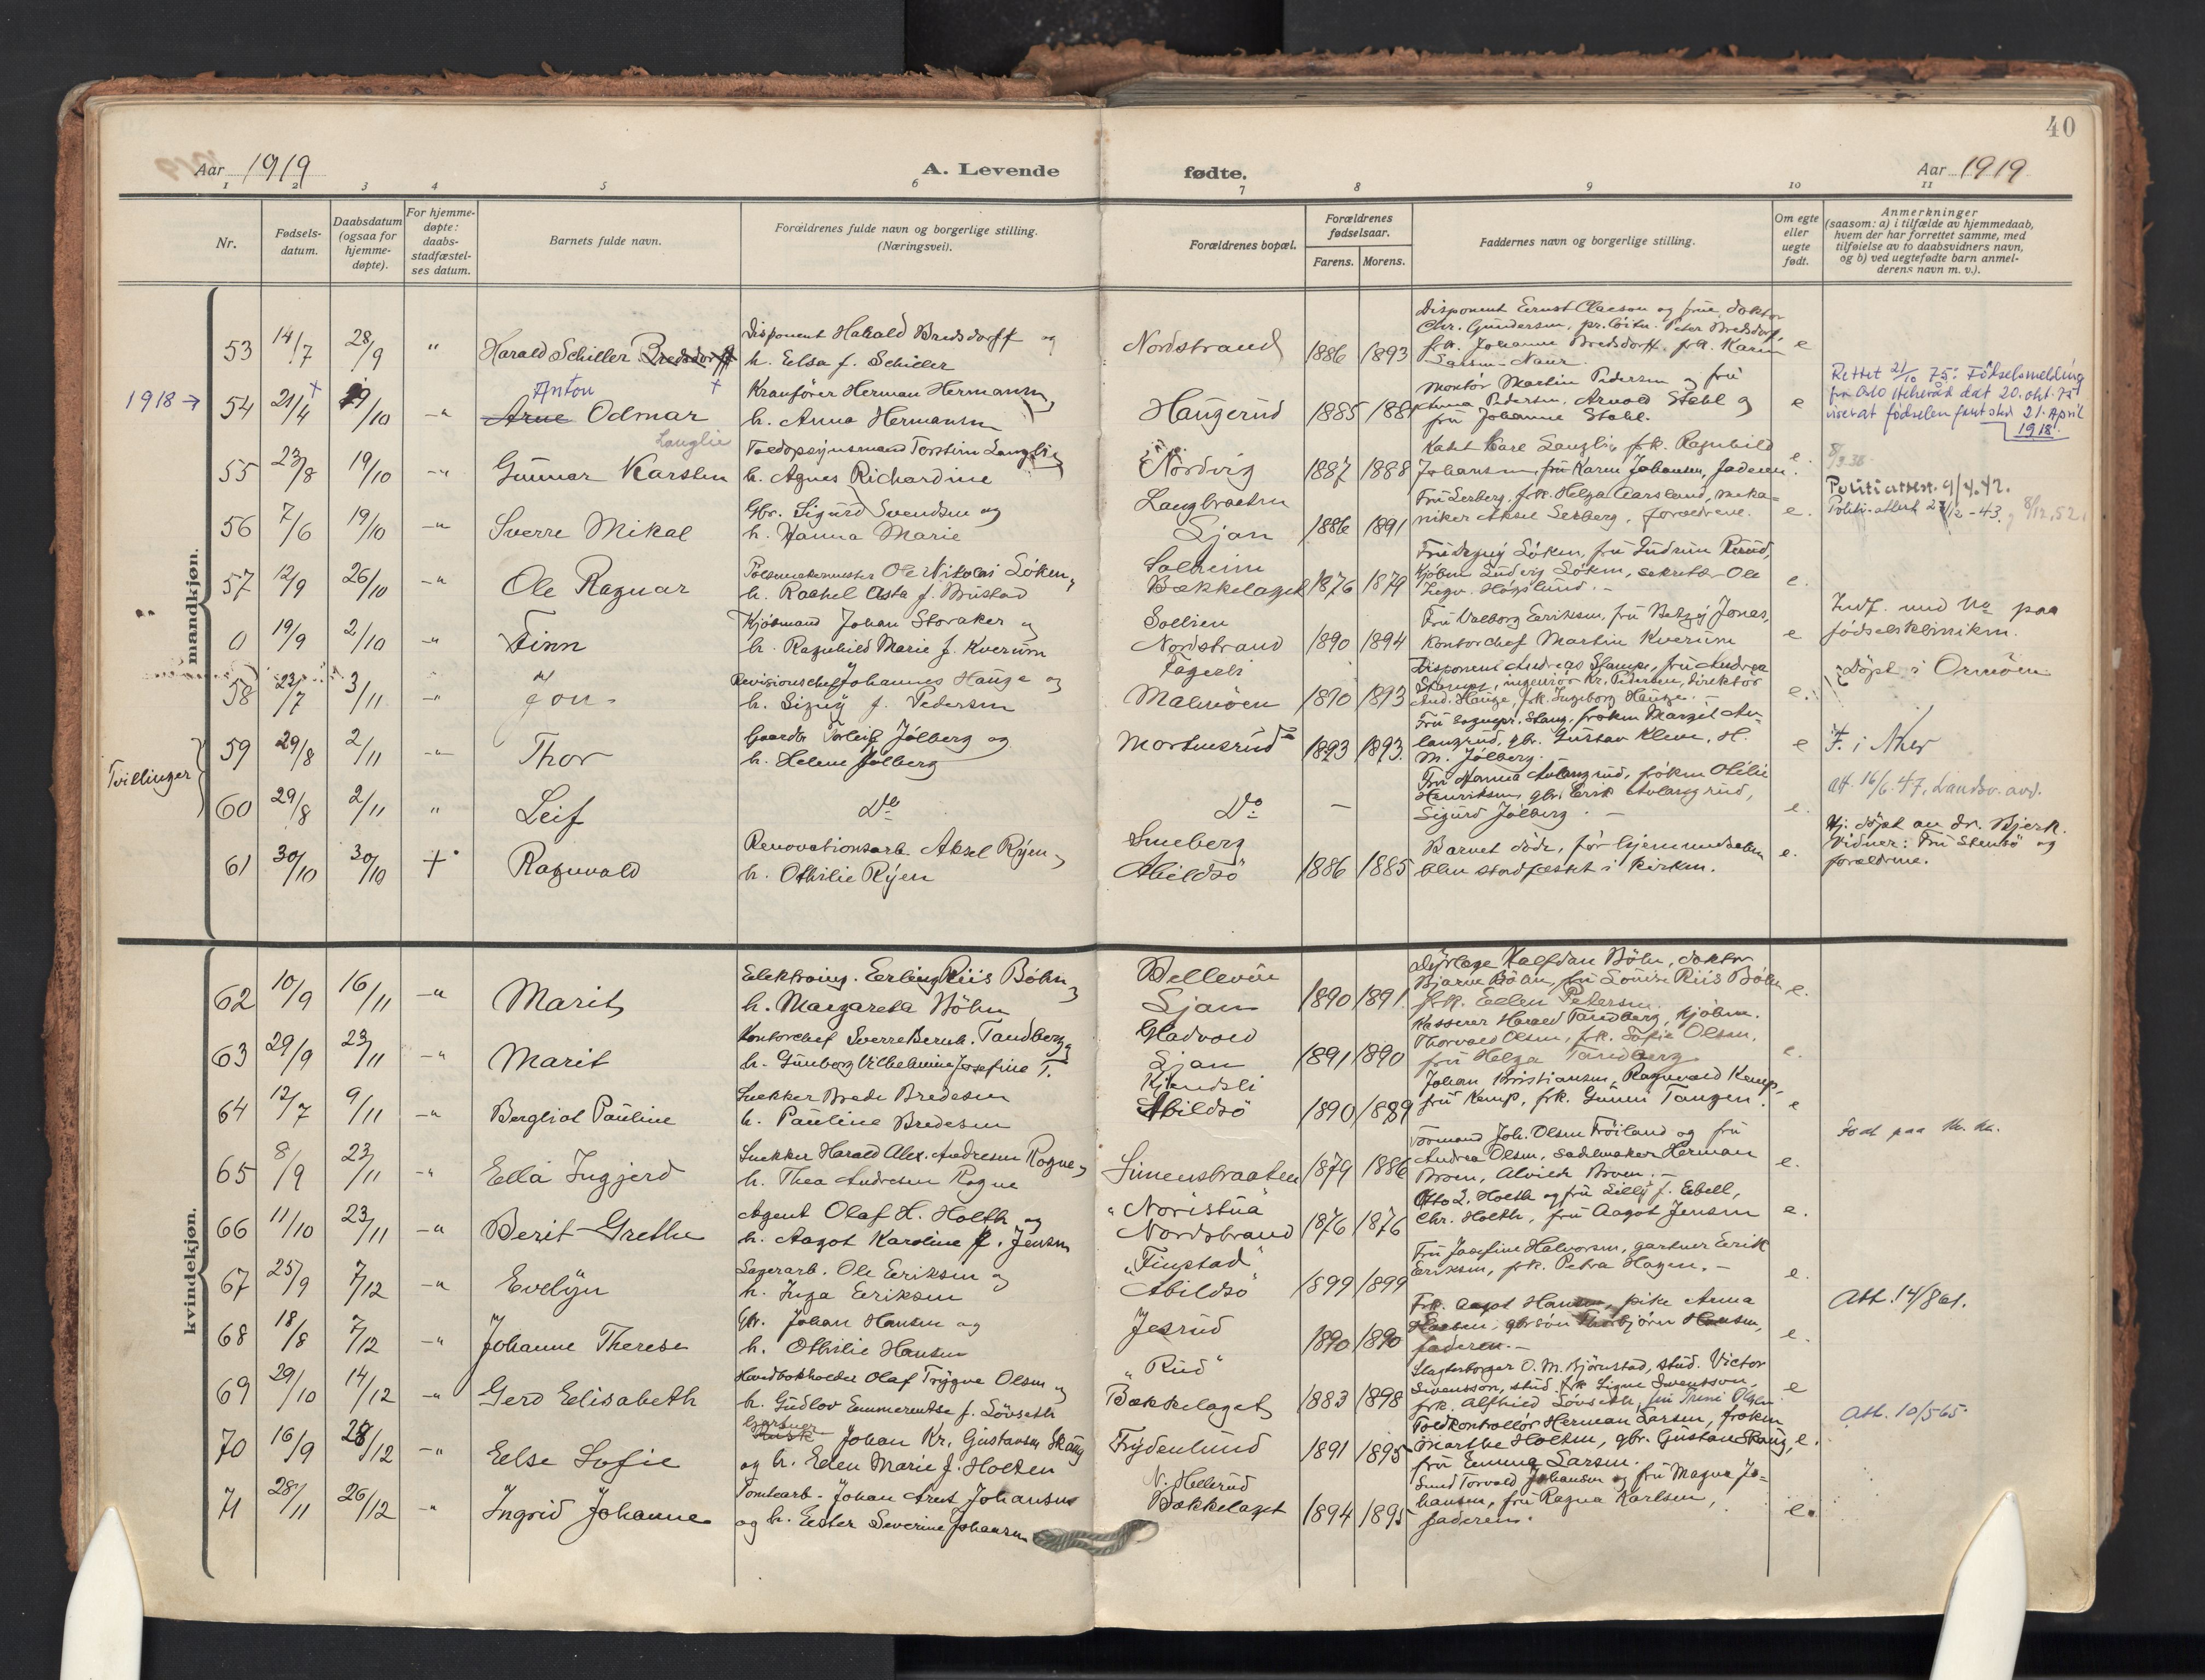 40
Aar 1919
A. Levende
fødte.
Aar 1919
1 2 3 4 5 6 7 8 9 10 11
Nr.
Fødsels-
datum.
Daabsdatum
(ogsaa for
hjemme-
døpte).
For hjemme-
døpte:
daabs-
stadfæstel-
ses datum.
Barnets fulde navn.
Forældrenes fulde navn og borgerlige stilling.
(Næringsvei).
Forældrenes bopæl.
Forældrenes
fødselsaar.
Farens. Morens.
Faddernes navn og borgerlige stilling.
Om egte
eller
uegte
født.
Anmerkninger
(saasom: a) i tilfælde av hjemmedaab,
hvem der har forrettet samme, med
tilføielse av to daabsvidners navn,
og b) ved uegtefødte barn anmel-
derens navn m. v.).
mandkjøn.
53 14/7 28/9 " Harald Schiller Bredsdorff
Disponent Harald Bredsdorff og
h. Elsa f. Schiller
Nordstrand 1886 1893
Disponent Ernst Claeson og frue, doktor
Chr. Gundersen, Peter Bredsdorff,
frk. Johanne Bredsdorff, frk. Karin
e
1918 → 54 21/4 + 19/10 -"- Arne Odmar
Anton
Kranfører Herman Hermansen +
h. Anna Hermansen
Haugerud 1885
Montør Martin Pedersen og fru
Anna Pedersen, Arnold Stahl og
fru Johanne Stahl.
e
Rettet 21/10 75: Fødselsmelding
fra Oslo dat 20. okt. 75
viser at fødselen fant sted 21. April
1918.
55 23/8 19/10 -"- Gunnar Karsten
Langlie
Toldopsynsmand Torstein Langlie
h. Agnes Richardine
Nordvig 1887 1888
Kare Langlie, frk. Ragnhild
Johansen, fru Karen Johansen, faderen.
e.
56 7/6 19/10 -"- Sverre Mikal
Gbr. Sigurd Svendsen og
h. Hanna Marie
Langbraaten
Ljan 1886 1891
Fru Serberg, frk. Helga Aarsland, meka-
niker Aksel Serberg, forældrene.
e.
Politiattest. 9/4.42.
Politi-attest 27/12-43. 8/12.52.
57 12/9 26/10 -"- Ole Ragnar
Pølsemakermester Ole Nikolai Løken,
h. Rachel Asta f. Brustad
Solheim
Bækkelaget 1876 1879
Fru Dagny Løken, fru Gudrun Ruud,
Kjøbm Ludvig Løken, sekretær Ole
Høgslund. -
e.
0 19/9 2/10 -"- Finn
Kjøbmand Johan Storaker og
h. Ragnhild Marie f. Kverum
Sollien
Nordstrand 1890 1894
Fru Valborg Eriksen, fru Betzy Jonas,
kontorchef Martin Kverum
e
Indf. med No paa
fødselsklinikken.
58 23/7 3/11 -"- Jon.
Revisionschef Johannes Hauge og
h. Signy f. Pedersen
Fagerli
Malmöen 1890 1893
Disponent Andreas Stampe, fru Andrea
Stampe, ingeniør Kr. Pedersen, direktør
And. Hauge, frk. Ingeborg Hauge. -
e.
Døpt i Ormøen
Tvillinger
59 29/8 2/11 -"- Thor
Gaardbr Torleif Jølberg og
h. Helene Jølberg
Mortensrud 1893 1893.
Fru sognepr. Stang, frøken Margit Av-
langrud, gbr. Gustav Kleve, H.
M. Jølberg.
e
F. i Aker
60 29/8 2/11 " Leif
Do
Do -
Fru Hanna Avlangrud, frøken Otilie
Henriksen, gbr. Erik Avlangrud,
Sigurd Jølberg. -
e.
Att. 16/6.47. Landsv. avd.
61 30/10 30/10 + Ragnvald
Renovationsarb. Aksel Ryen
h. Othilie Ryen
Smeberg
Abildsö 1886 1885
Barnet døde, før hjemmedaaben
blev stadfæstet i kirken.
e.
Hj. døpt av dr. Bjerk.
Vidner: Fru Stensö og
forældrene.
kvindekjøn.
62 10/9 16/11 -"- Marit
Elektroing. Erling Riis Böhn
h. Margareta Böhn
Bellevue
Ljan 1890 1891.
Dyrlæge Halfdan Böhn, doktor
Bjarne Böhn, fru Louise Riis Böhn
frk. Ellen Petersen.
e.
63 29/9 23/11 -"- Marit
Kontorchef Sverre Bernh. Tandberg og
h. Gunborg Vilhelmine Josefine T.
Gladvold
Ljan 1891 1890
Kasserer Harald Tandberg, kjøbm.
Thorvald Olsen, frk. Sofie Olsen,
fru Helga Tandberg
e.
64 12/7 9/11 -"- Bergliot Pauline
Snekker Brede Bredesen
h. Pauline Bredesen
Kjendsli
Abildsö 1890 1889
Johan Kristiansen, Ragnvald Kemp,
fru Kemp, frk. Gunni Tangen.
e
Født paa Kv. kl.
65 8/9 23/11 -"- Ella Ingjerd
Snekker Harald Alex. Andresen Rogne
h. Thea Andresen Rogne
Simensbraaten 1879 1886
Formand Joh. Olsen Frøiland og fru
Andrea Olsen, sadelmaker Herman
Broen, Alvilde Broen. -
e.
66 11/10 23/11 -"- Berit-Grethe
Agent Olaf H. Holth og
h. Aagot Karoline f. Jensen
"Noristua"
Nordstrand 1876 1876
Otto L. Holth og fru Lilly f. Ebell,
Chr. Holth, fru Aagot Jensen
e.
67 25/9 7/12 -"- Evelyn
Lagerarb. Ole Eriksen og
h. Inga Eriksen
"Finstad"
Abildsö 1899 1899
Fru Josefine Halvorsen, gartner Erik
Eriksen, frk. Petra Hagen. -
e.
Att. 14/8 61.
68 18/8 7/12 -"- Johanne Therese
Gbr. Johan Hansen og
h. Othilie Hansen
Jesrud 1890 1890
Frk. Aagot Hansen, pike Anna
Hansen, gbr.søn Thorbjørn Hansen,
faderen. -
e.
69 29/10 14/12 -"- Gerd Elisabeth
Handbokholder Olaf Trygve Olsen og
h. Gudlov Emmerentse f. Lövseth
"Rud"
Bækkelaget 1883 1898
Slagterborger O. M. Bjørnstad, stud. Victor
Svensson, stud. frk Signe Svensson,
frk. Alfhild Lövseth, fru Trine Olsen
e
70 16/9 28/12 -"- Else Sofie
Gartner
Johan Kr. Gustavsen Skaug
og h. Ellen Marie f. Holten
Frydenlund 1891 1895
Toldkontrollør Herman Larsen, frøken
Marthe Holten, gbr. Gustav Skaug,
fru Emma Larsen.
e.
Att. 10/5 65.
71 28/11 26/12 -"- Ingrid Johanne
Tomtearb. Johan Arnt Johansen
og h. Ester Severine Johansen
N. Hellerud
Bækkelaget 1894 1895
Torvald Johansen og fru Magna Jo-
hansen, fru Ragna Karlsen,
faderen.
e.